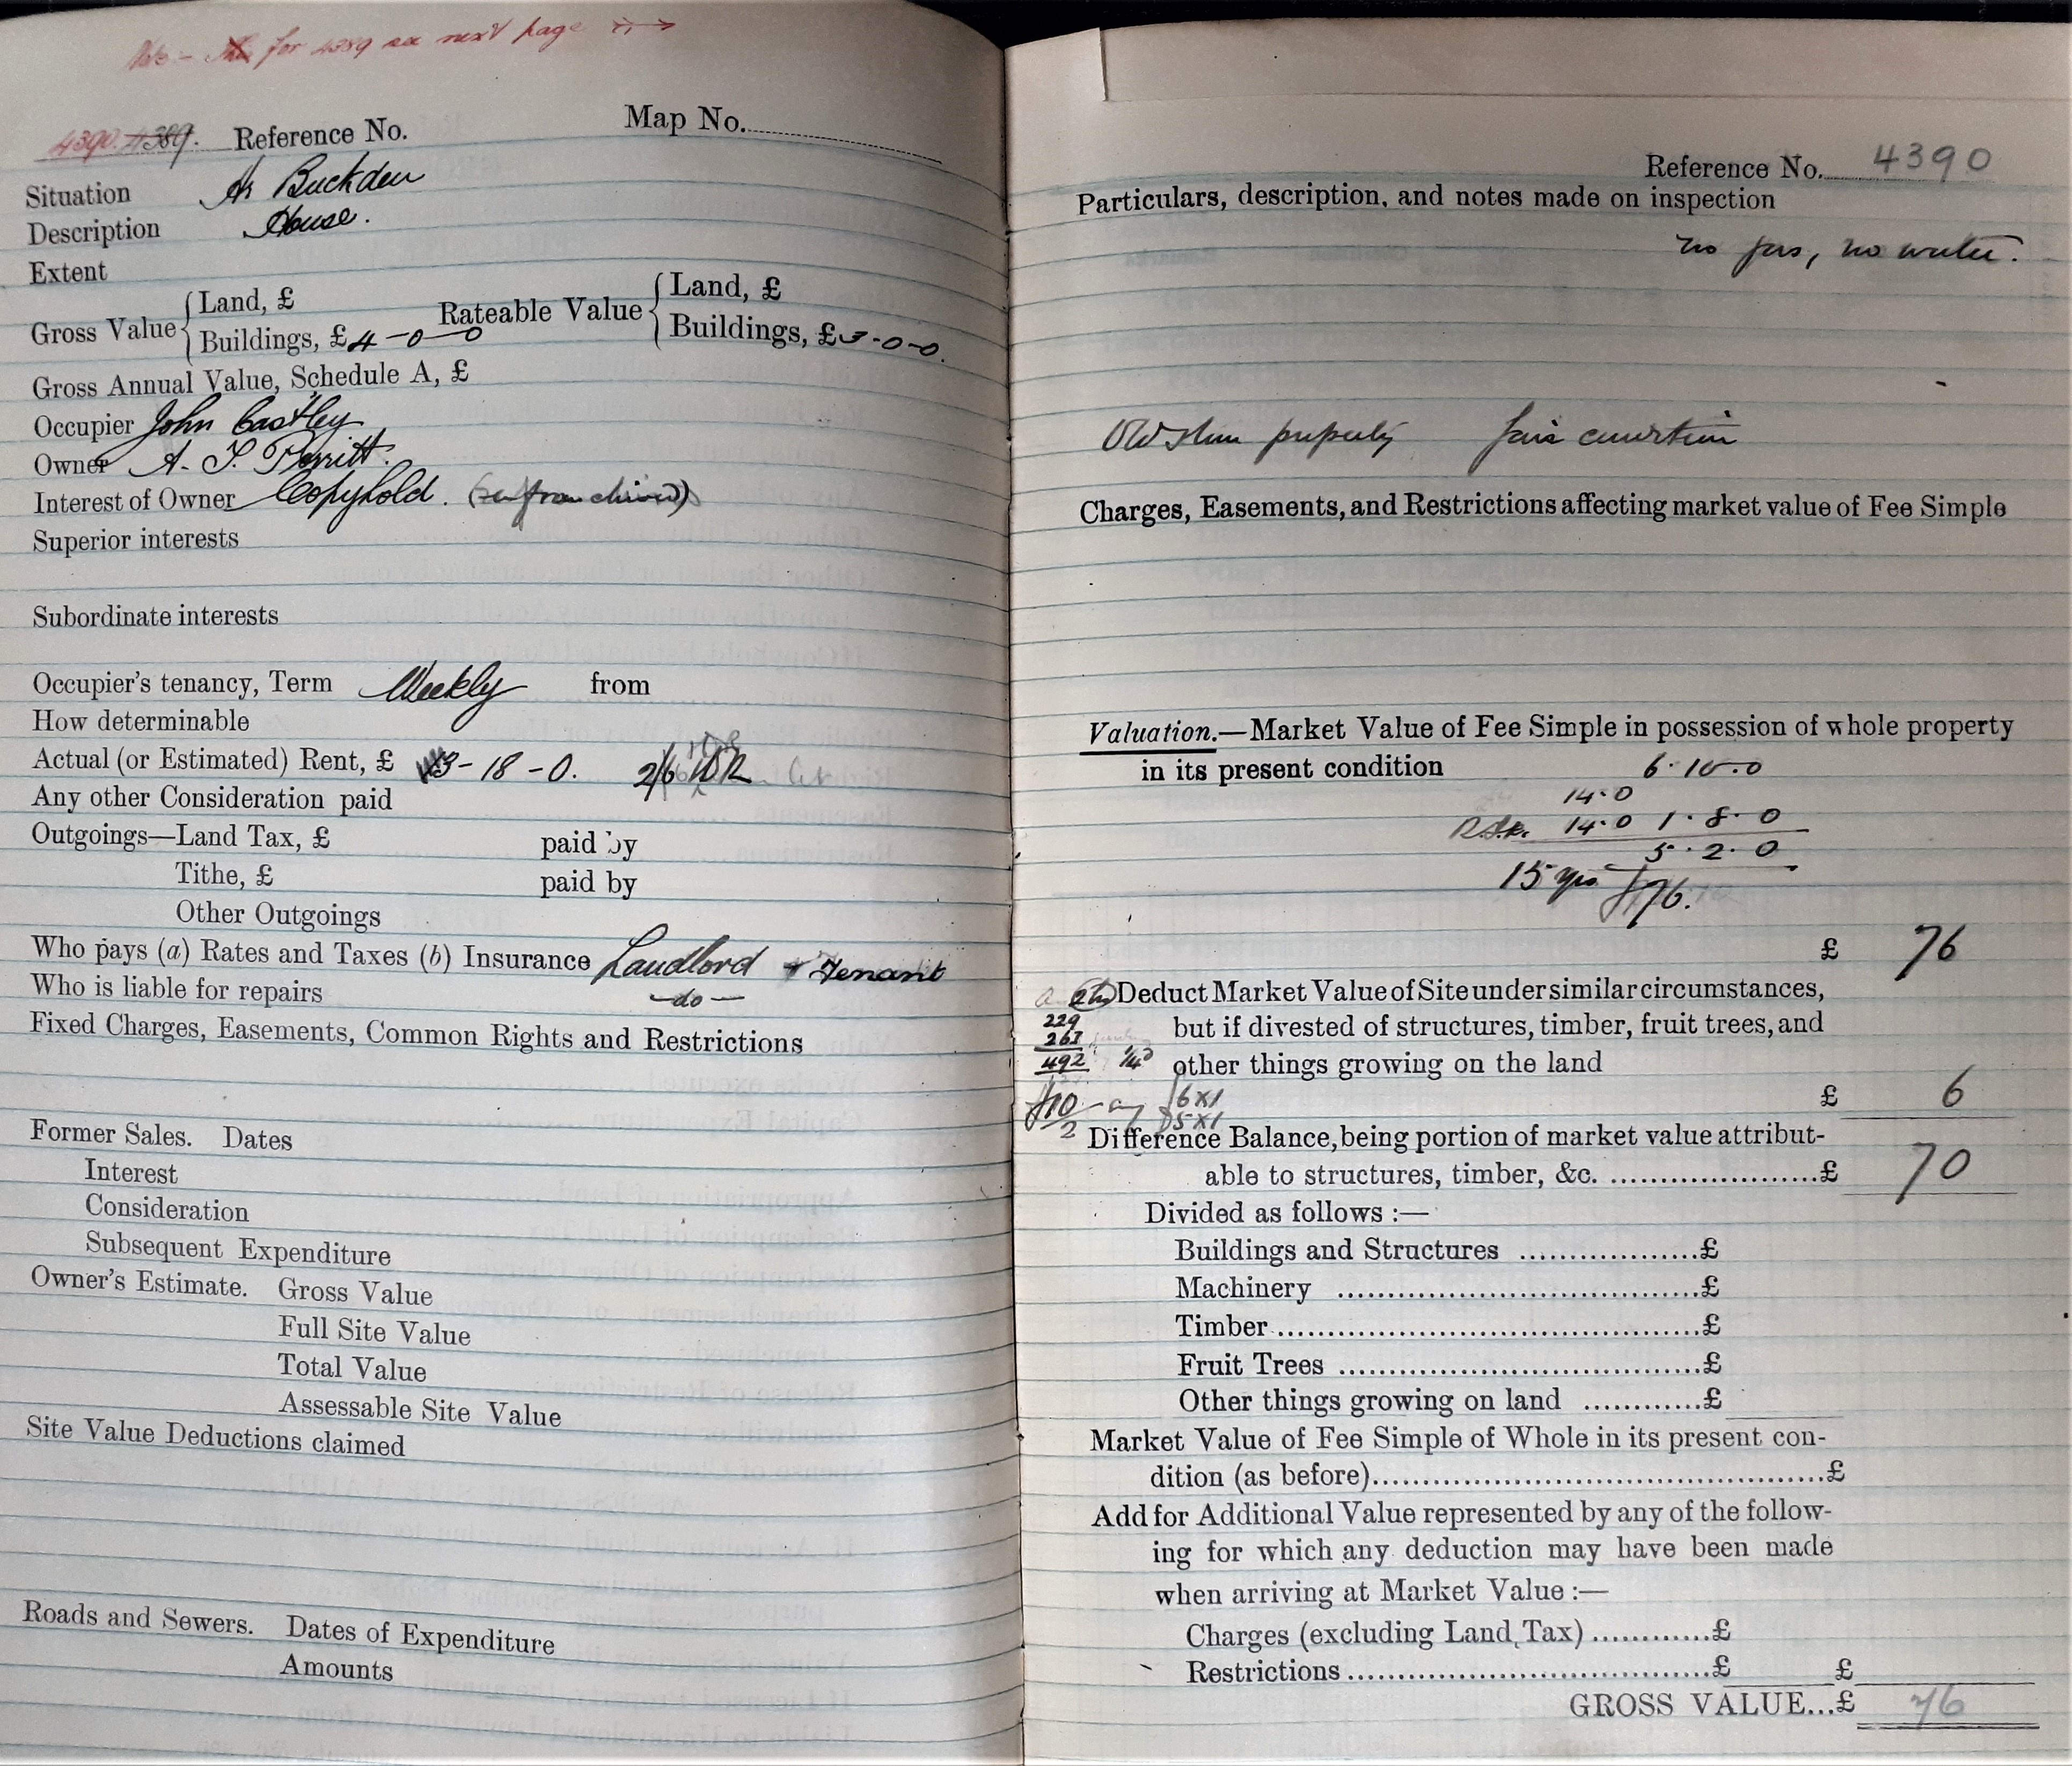 Note - for 4389 see next page
4390. 4389. Reference No. Map No.
Situation At Buckden
Description House.
Extent
Gross Value { Land, £ Rateable Value { Land, £
Buildings, £4-0-0 Buildings, £3-0-0.
Gross Annual Value, Schedule A, £
Occupier John Castley
Owner A. T. Perritt.
Interest of Owner Copyhold. (enfranchised)
Superior interests
Subordinate interests
Occupier's tenancy, Term Weekly from
How determinable
Actual (or Estimated) Rent, £ 3-18-0. 2/6
Any other Consideration paid
Outgoings—Land Tax, £ paid by
Tithe, £ paid by
Other Outgoings
Who pays (a) Rates and Taxes (b) Insurance Landlord + Tenant
Who is liable for repairs —do—
Fixed Charges, Easements, Common Rights and Restrictions
Former Sales. Dates
Interest
Consideration
Subsequent Expenditure
Owner's Estimate. Gross Value
Full Site Value
Total Value
Assessable Site Value
Site Value Deductions claimed
Roads and Sewers. Dates of Expenditure
Amounts
Reference No. 4390
Particulars, description, and notes made on inspection
no gas, no water.
Old stone property fair condition
Charges, Easements, and Restrictions affecting market value of Fee Simple
Valuation.—Market Value of Fee Simple in possession of whole property
in its present condition 6.10.0
14.0
14.0 1.8.0
5.2.0
15 yrs £76.
£ 76
Deduct Market Value of Site under similar circumstances,
229 but if divested of structures, timber, fruit trees, and
263
492 other things growing on the land
£10 6x1 £ 6
2 5x1
Difference Balance, being portion of market value attribut-
able to structures, timber, &c. ......................£ 70
Divided as follows :—
Buildings and Structures ...................£
Machinery .......................................£
Timber.............................................£
Fruit Trees .......................................£
Other things growing on land ............£
Market Value of Fee Simple of Whole in its present con-
dition (as before)................................................£
Add for Additional Value represented by any of the follow-
ing for which any deduction may have been made
when arriving at Market Value :—
Charges (excluding Land Tax) ............£
Restrictions......................................£ £
GROSS VALUE...£ 76